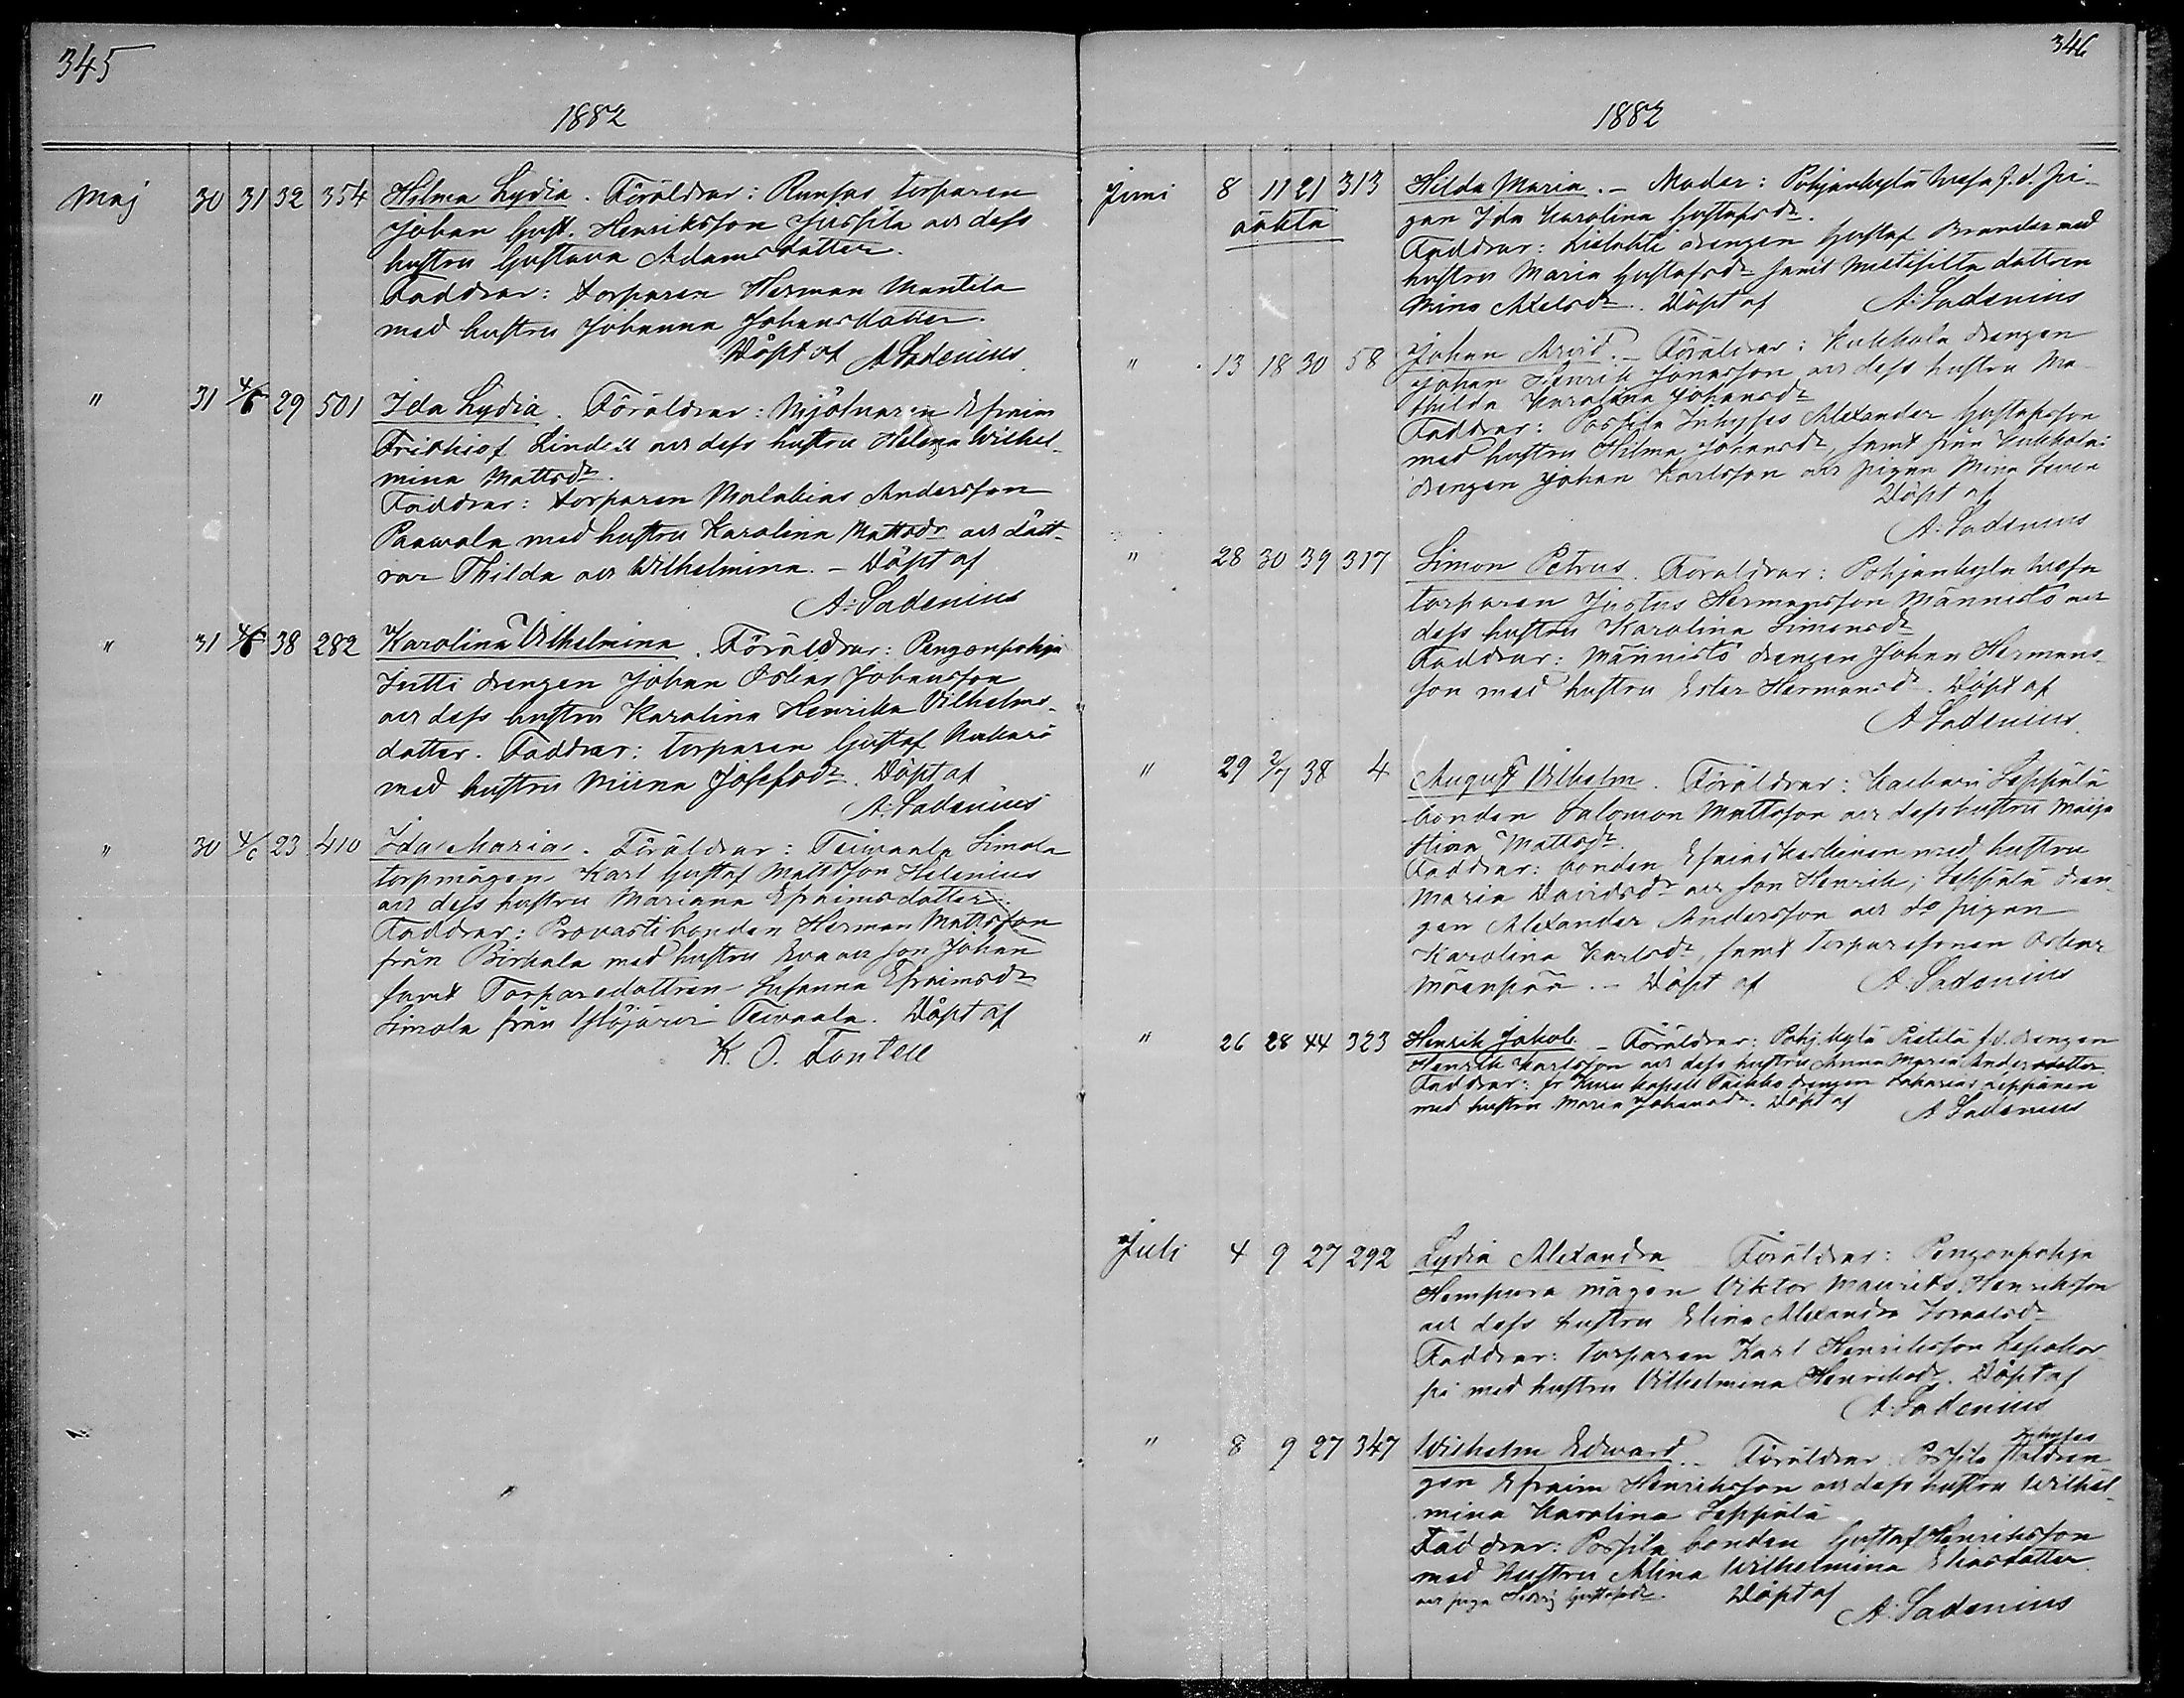 345
1882
Maj 30 31 32 354 Hilma Lydia. Föräldrar: Runsas torparen
Johan Gust. Henriksson Jussila och dess
hustru Gustava Adamsdotter.
Faddrar: torparen Herman Mantila
med hustru Johanna Johansdotter.
Döpt af A Ladenius
" 31 4/6 29 501 Ida Lydia. Föräldrar: Mjölnaren Efraim
Frithiof Lindell och dess hustru Helena Wilhel-
mina Mattsdr.
Faddrar: torparen Malakias Andersson
Paawola med hustru Karolina Mattsdr och dött-
rar Thilda och Wilhelmina. – Döpt af
A. Ladenius
" 31 4/6 38 282 Karolina Vilhelmina. Föräldrar: Pengonpohja
Jutti drengen Johan Oskar Johansson
och dess hustru Karolina Henrika Vilhelms-
dotter. Faddrar: torparen Gustaf
med hustru Miina Josefsdr. Döpt af
A. Ladenius
" 30 4/6 23 410 Ida Maria. Föräldrar: Teiwaala Simola
torpmågen Karl Gustaf Mattsson Helenius
och dess hustru Mariana Efraimsdotter.
Faddrar: Provasti bonden Herman Mattsson
från Birkala med hustru Eva och son Johan
samt Torparedottren Susanna Efraimsdr
Simola från Ylöjärvi Teivaala. Döpt af
K. O. Fontell
346
1882
Juni 8 11 21 313 Hilda Maria. – Moder: Pohjankylä Wesa f.d. pi-
oäkta gan Ida Karolina Gustafsdr.
Faddrar: drengen Gustaf Brander med
hustru Maria Gustafsdr samt dottren
Mina Axelsdr. Döpt af A. Ladenius
" 13 18 30 58 Johan Arvid. – Föräldrar: Kukkola drengen
Johan Henrik Jonasson och dess hustru Ma-
thilda Karolina Johansdr
Faddrar: Possila Inhyses Alexander Gustafsson
med hustru Hilma Johansdr, samt från Kukkola:
drengen Johan Karlsson och pigan Mina
Döpt af
A. Ladenius
" 28 30 39 317 Simon Petrus. Föräldrar: Pohjankylä Wesa
torparen Justus Hermansson Männistö och
dess hustru Karolina Simonsdr
Faddrar: Männistö drengen Johan Hermans-
son med hustru Ester Hermansdr. Döpt af
A Ladenius
" 29 2/7 38 4 August Vilhelm. Föräldrar: Seppälä
bonden Salomon Mattsson och dess hustru Maija
Stina Mattsdr.
Faddrar: bonden Efraim med hustru
Maria Davidsdr och son Henrik; Seppälä dren-
gen Alexander Andersson och do pigan
Karolina Karlsdr, samt torparesonen Oskar
Mäenpää. – Döpt af A. Ladenius
" 26 28 44 323 Henrik Jakob. – Föräldrar: Pohj.kylä Pietilä f.d. drengen
Henrik Karlsson och dess hustru Anna Maria Andersdotter.
Faddrar: fr Kuru kapell drengen Zakarias
med hustru Maria Johansdr. Döpt af A Ladenius
Juli 4 9 27 292 Lydia Alexandra Föräldrar: Pengonpohja
Hempura mågen Viktor Maurits Henriksson
och dess hustru Elina Alexandra Israelsdr
Faddrar: torparen Karl Henriksson Lepokor-
pi med hustru Vilhelmina Henriksdr. Döpt af
A. Ladenius
inhyses
" 8 9 27 347 Wilhelm Edvard. – Föräldrar: Possila staldren-
gen Efraim Henriksson och dess hustru Wilhel-
mina Karolina Seppälä
Faddrar: Possila bonden Gustaf Henriksson
med hustru Alina Wilhelmina Eliasdotter
och piga Hedvig Gustafsdr. Döpt af
A. Ladenius